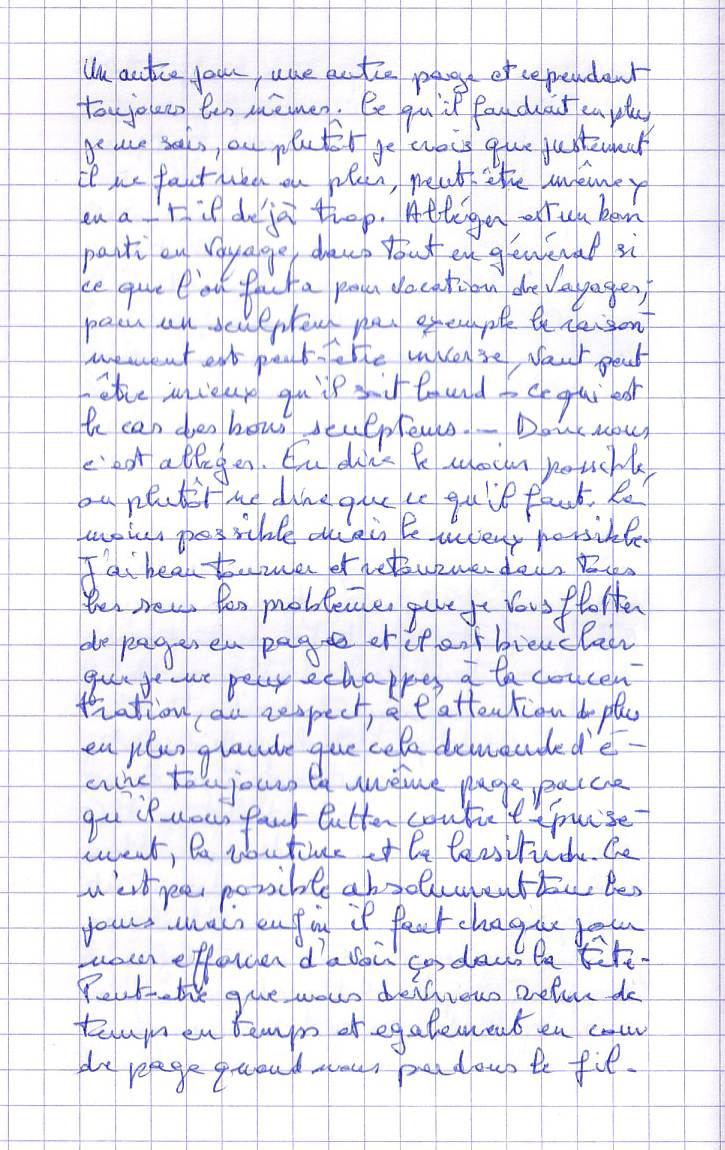 Un autre jour, une autre page et cependant
toujours les mêmes. Ce qu'il faudrait en plus,
je ne sais, ou plutôt je crois que justement
il ne faut rien en plus, peut-être même y
en a-t-il déjà trop. Alléger est un bon
parti en voyage, dans tout en général si
ce que l'on fait a pour vocation de voyager,
pour un sculpteur par exemple le raison-
nement est peut-être inverse, vaut peut
-être mieux qu'il soit lourd - ce qui est
le cas des bons sculpteurs. - Donc nous
c'est alléger. En dire le moins possible,
ou plutôt ne dire que ce qu'il faut. Le
moins possible mais le mieux possible.
J'ai beau tourner et retourner dans tous
les sens les problèmes que je vois flotter
de pages en page et il est bien clair
que je ne peux échapper à la concen-
tration, au respect, à l'attention de plus
en plus grande que cela demande d'é-
crire toujours la même page, parce
qu'il nous faut lutter contre l'épuise-
ment, la routine et la lassitude. Ce
n'est pas possible absolument tous les
jours mais enfin il faut chaque jour
nous efforcer d'avoir ça dans la tête.
Peut-etre que nous devrions relire de
temps en temps et egalement en cour
de page quand nous perdons le fil.